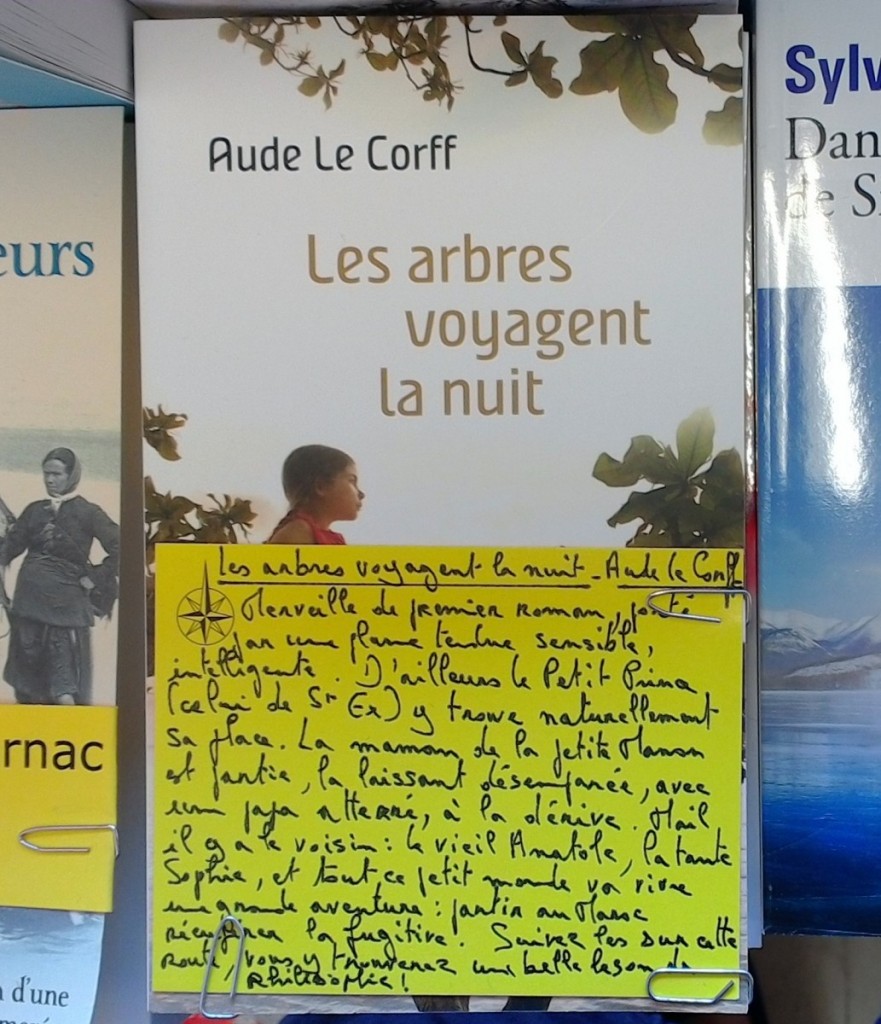 Aude Le Corff
Les arbres
voyagent
la nuit
Les arbres voyagent la nuit - Aude le Corff
Merveille de premier roman, porté
par une plume tendre sensible,
intelligente. D'ailleurs le Petit Prince
(celui de St Ex) y trouve naturellement
sa place. La maman de la petite Manon
est partie, la laissant désemparée, avec
un papa atterré, à la dérive. Mail
il y a le voisin : le vieil Anatole, la tante
Sophie, et tout ce petit monde va vivre
une grande aventure : partir au Maroc
récupérer la fugitive. Suivez les sur cette
route, vous y trouverez une belle leçon de
philosophie !
eurs
rnac
d'une
Sylv
Dan
de S